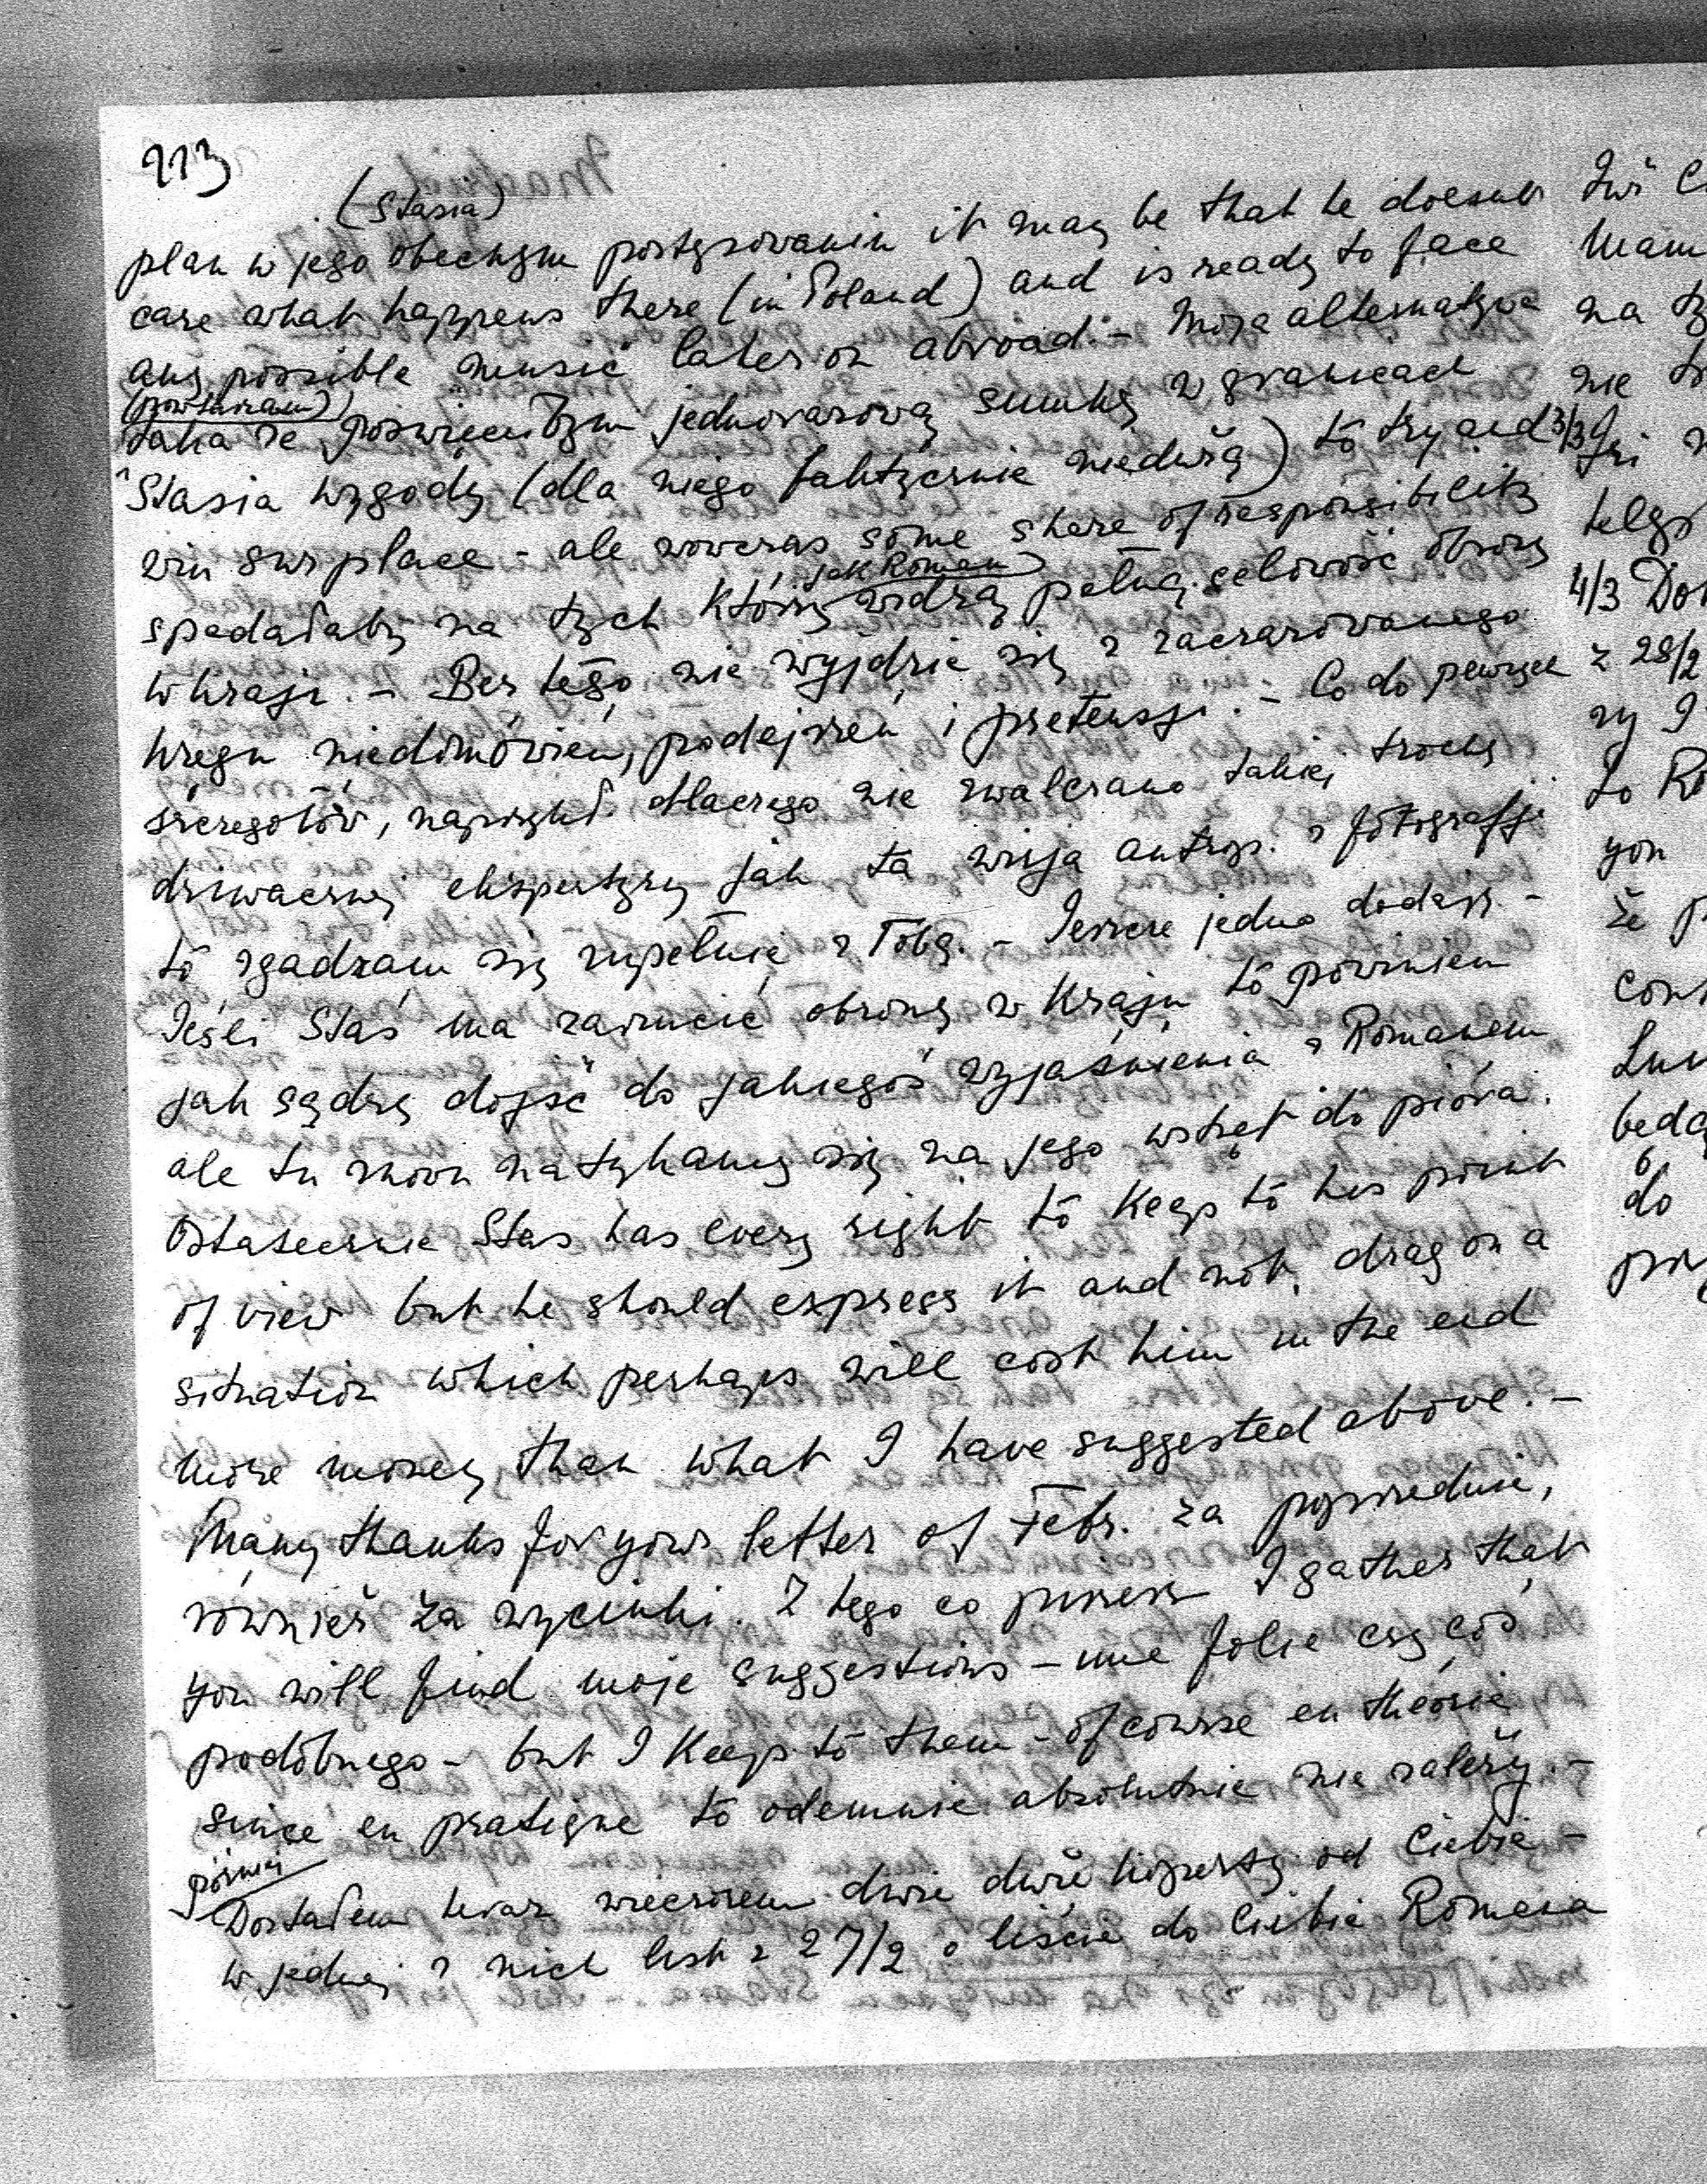 213
(Stasia)
plan w jego obecnym postępowaniu it may be that he doesnt
care what happens there (in Poland) and is ready to face
any possible nuisć later on abroad. - Moja alternatywa
(powtarzam)
taka że poświęceniem jednorazową sumkę w granicach
Stasia wygody (dla niego faktycznie niedużą) to try and
win sur place - ale wowczas some share of responsibility
jak Roman
spadałaby na tych którzy widzą pełną celowość obrony
w kraju. - Bez tego nie wyjdzie się z zaczarowanego
kręgu niedomówień, podejrzeń i pretensji. - Co do pewnych
szczegółów, naprzykł. dlaczego nie zwalczano takiej trochę
dziwacznej ekspertyzy jak ta wizja antrop. z fotografji
to zgadzam się zupełnie z Tobą. - Jeszcze jedno dodaję -
Jeśli Staś ma zarzucić obronę w Kraju to powinien
jak sądzę dojść do jakiegoś wyjaśnienia z Romanem
ale tu znowu natykamy się na jego wstręt do pióra.
Ostatecznie Staś has every right to keep to his point
of view but he should express it and not drag on a
situation which perhaps will cost him in the end
more money than what I have suggested above. -
Many thanks for your letter of Febr. za poprzednie,
również za wycinki. Z tego co piszesz I gather that
you will find moje suggestions - une folie czy coś
podobnego - but I keep to them - of course en théorie
since en pratique to odemnie absolutnie nie zależy. -
później
Dostałem teraz wieczorem dwie duże koperty od Ciebie -
w jednej z nich list z 27/2 o liście do Ciebie Romana
Mam
na
nie
3/3
4/3
z 28/2
ny I
to
you
że
do